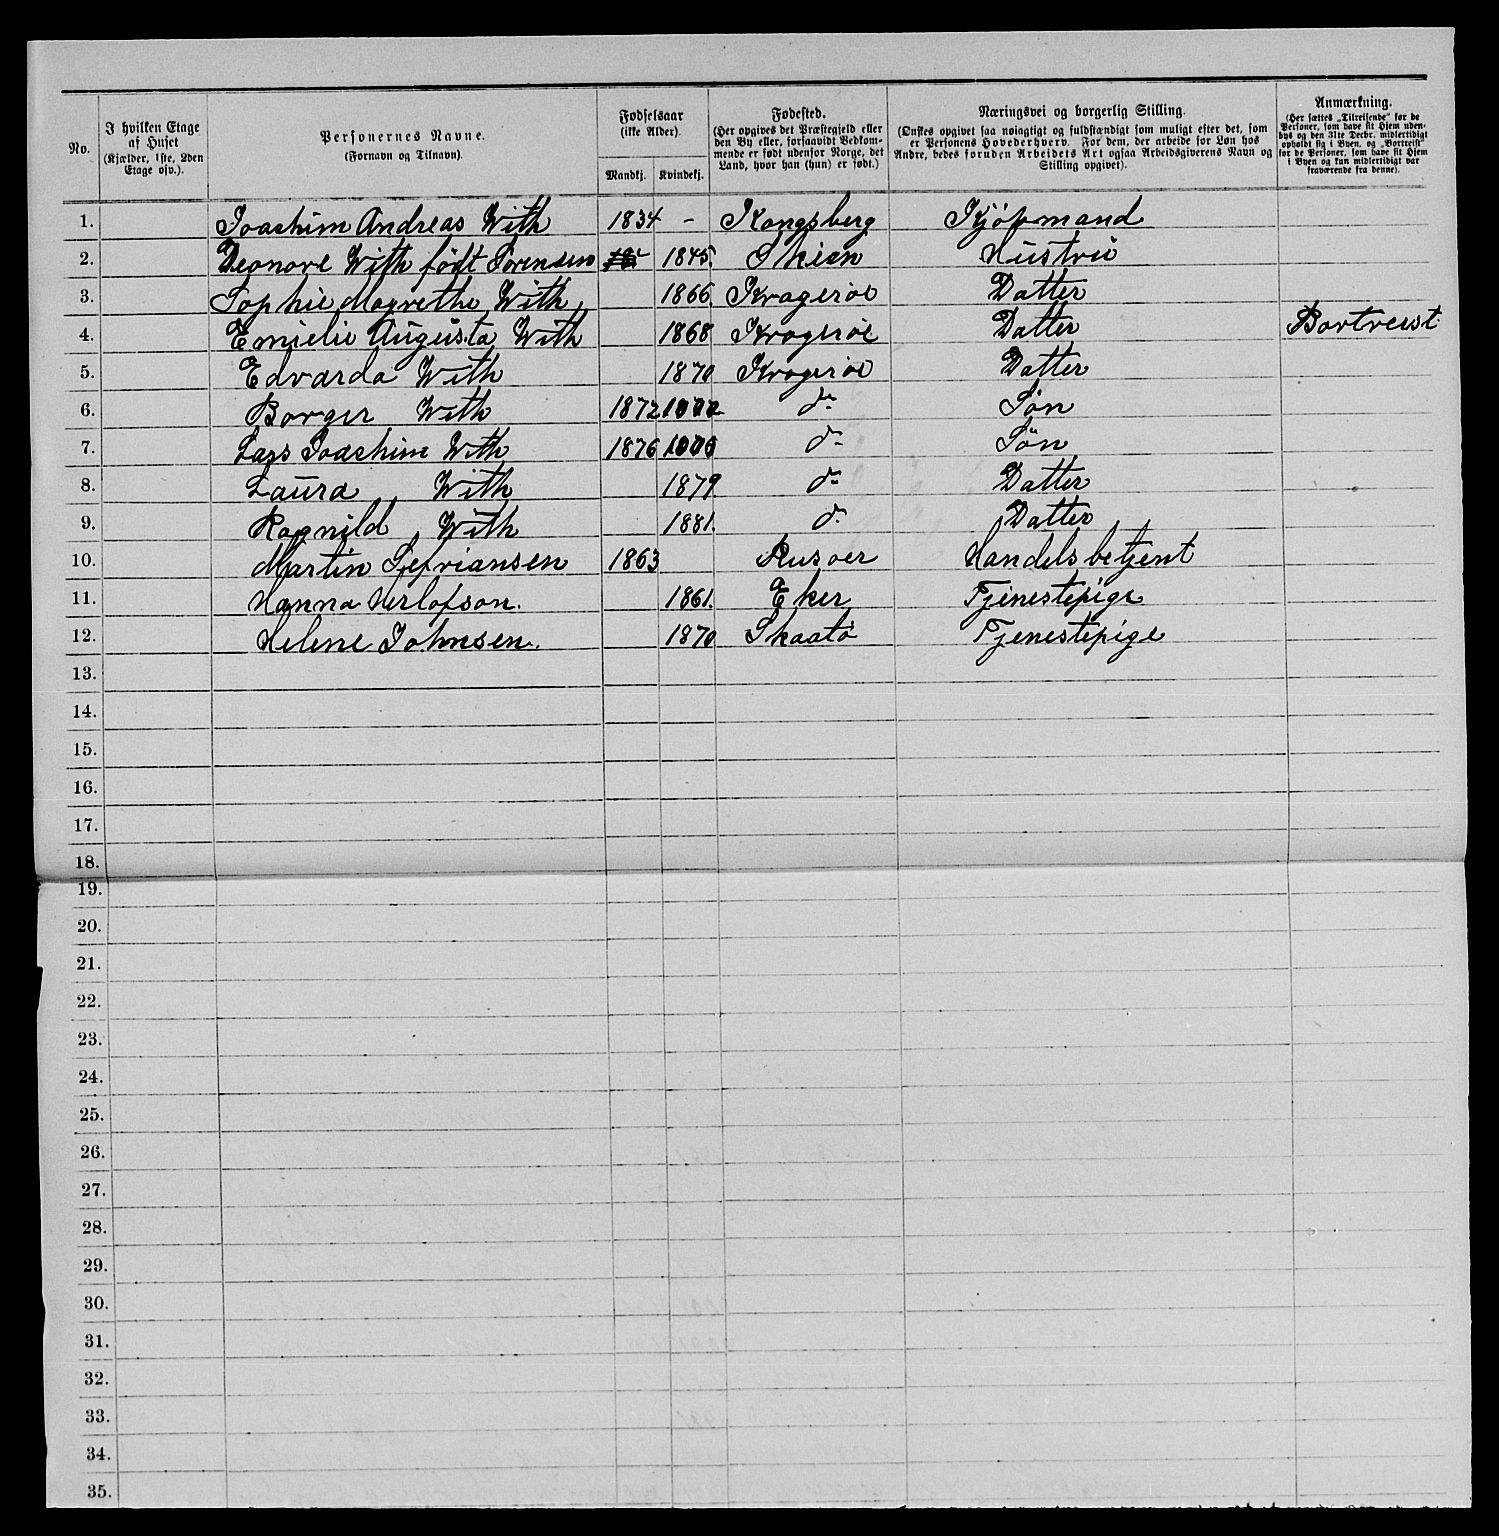 No.
I hvilken Etage af Huset (Kjælder, 1ste, 2den Etage osv.).
Personernes Navne. (Fornavn og Tilnavn).
Fødselsaar (ikke Alder). Mandkj. Kvindekj.
Fødested. (Her opgives det Præstegjeld eller den By eller, forsaavidt Vedkommende er født udenfor Norge, det Land, hvor han (hun) er født.)
Næringsvei og borgerlig Stilling. (Ønskes opgivet saa nøiagtigt og fuldstændigt som muligt efter det, som er Personens Hovederhverv. For dem, der arbeide for Løn hos Andre, bedes foruden Arbeidets Art ogsaa Arbeidsgiverens Navn og Stilling opgivet).
Anmærkning. (Her sættes „Tilreisende" for de Personer, som have sit Hjem udenbys og den 31te Decbr. midlertidigt opholdt sig i Byen, og „Bortreist" for de Personer, som have sit Hjem i Byen og kun midlertidigt var fraværende fra denne).
1. Joachim Andreas With 1834 - Kongsberg Kjøpmand
2. Leonore With født Sørensen 1845. Skien Hustru
3. Sophie Magrethe With 1866. Kragerøe Datter
4. Emielie Augusta With 1868 Kragerøe Datter Bortreist
5. Edvarda With 1870 Kragerøe Datter
6. Borger With 1872 do Søn
7. Lars Joachim With 1876 do Søn
8. Laura With 1879 do Datter
9. Ragnild With 1881. do Datter
10. Martin Sefriansen 1863 Rusøer Handelsbetjent
11. Hanna Herlofson. 1861. Eker Tjenestepige
12. Helene Johnsen. 1870 Skaatø Tjenestepige
13.
14.
15.
16.
17.
18.
19.
20.
21.
22.
23.
24.
25.
26.
27.
28.
29.
30.
31.
32.
33.
34.
35.